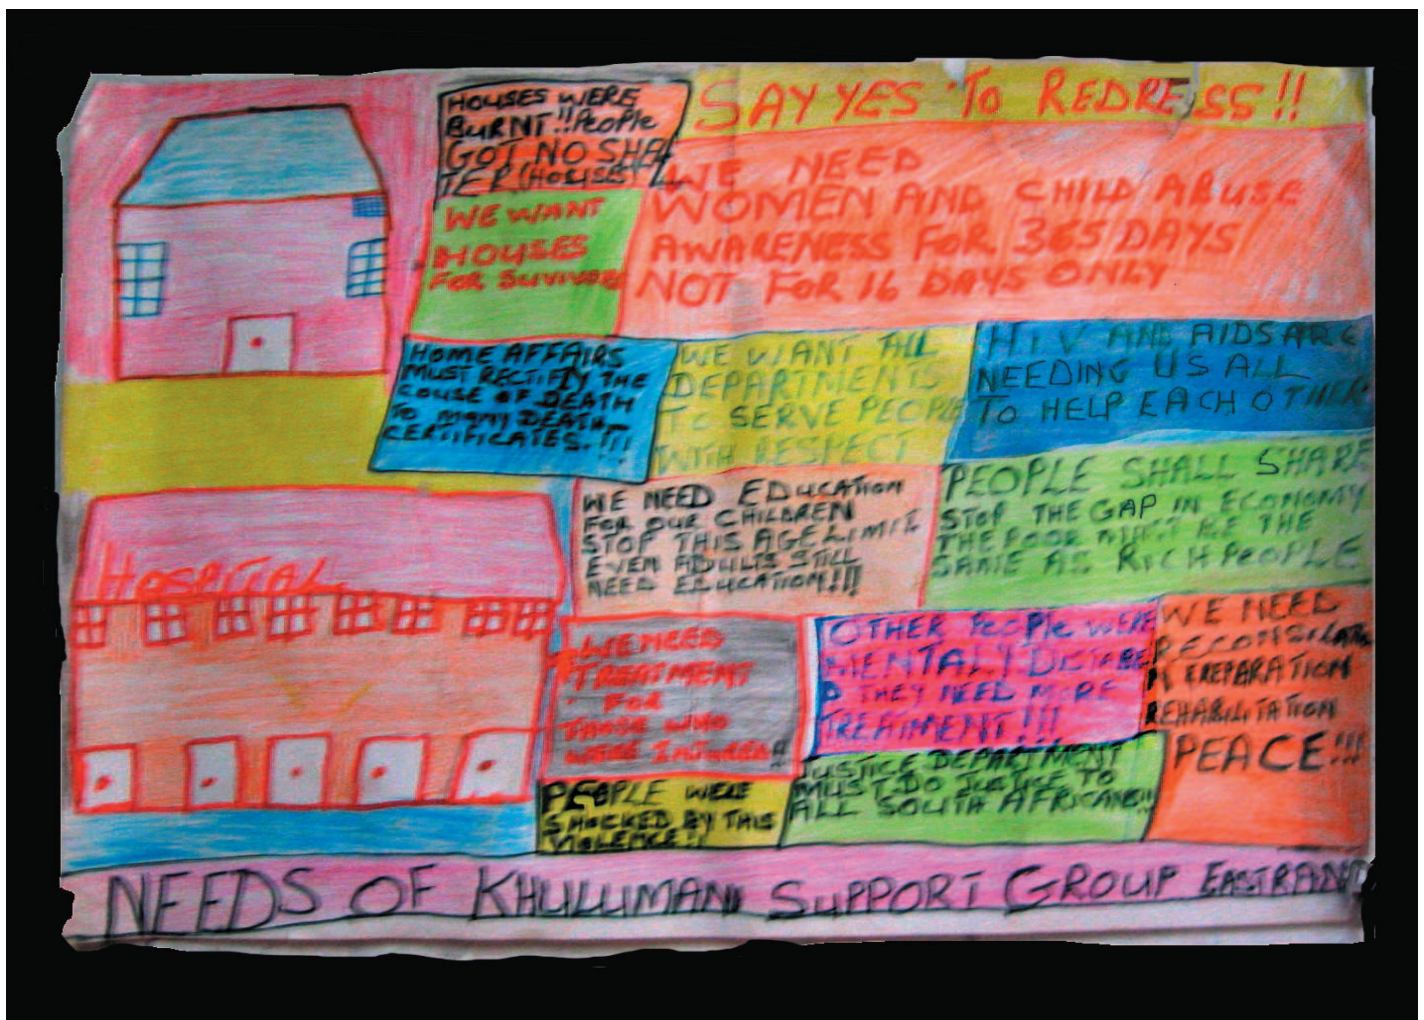 HOUSES WERE
BURNT!! PEOPLE
GOT NO SHEL
TER (HOUSES)
SAY YES To REDRESS!!
WE NEED
WOMEN AND CHILD ABUSE
AWARENESS FOR 365 DAYS
NOT FOR 16 DAYS ONLY
WE WANT
HOUSES
FOR SUVIVORS
HOME AFFAIRS
MUST RECTIFY THE
COUSE OF DEATH
TO MANY DEATH
CERTIFICATES.!!!
WE WANT ALL
DEPARTMENTS
TO SERVE PEOPLE
WITH RESPECT
HIV AND AIDS ARE
NEEDING US ALL
TO HELP EACH OTHER
HOSPITAL
WE NEED EDUCATION
FOR OUR CHILDREN
STOP THIS AGE LIMIT
EVEN ADULTS STILL
NEED EDUCATION!!!
PEOPLE SHALL SHARE
STOP THE GAP IN ECONOMY
THE POOR MUST BE THE
SAME AS RICH PEOPLE
WE NEED
TREATMENT
FOR
THOSE WHO
WERE INJURED!!
OTHER PEOPLE WERE
MENTALY DISTABE
D THEY NEED MORE
TREATMENT!!!
WE NEED
RECONSILATIO
N REPARATION
REHABILITATION
PEACE!!!
PEOPLE WERE
SHOCKED BY THIS
VIOLENCE!!
JUSTICE DEPARTMENT
MUST DO JUSTICE TO
ALL SOUTH AFRICANS!!
NEEDS OF KHULUMANI SUPPORT GROUP EASTRAND